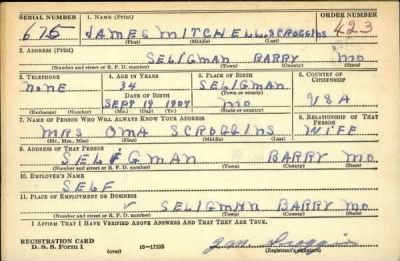 SERIAL NUMBER 1. NAME (Print) ORDER NUMBER
675 JAMES MITCHELL SCROGGINS 423
(First) (Middle) (Last)
2. ADDRESS (Print)
SELIGMAN BARRY MO.
(Number and street or R. F. D. number) (Town) (County) (State)
3. TELEPHONE 4. AGE IN YEARS 5. PLACE OF BIRTH 6. COUNTRY OF CITIZENSHIP
NONE 34 SELIGMAN
DATE OF BIRTH (Town or county)
SEPT 19 1907 MO USA
(Exchange) (Number) (Mo.) (Day) (Yr.) (State or country)
7. NAME OF PERSON WHO WILL ALWAYS KNOW YOUR ADDRESS 8. RELATIONSHIP OF THAT PERSON
MRS OMA SCROGGINS WIFE
(Mr., Mrs., Miss) (First) (Middle) (Last)
9. ADDRESS OF THAT PERSON
SELIGMAN BARRY MO.
(Number and street or R. F. D. number) (Town) (County) (State)
10. EMPLOYER'S NAME
SELF
11. PLACE OF EMPLOYMENT OR BUSINESS
SELIGMAN BARRY MO.
(Number and street or R. F. D. number) (Town) (County) (State)
I AFFIRM THAT I HAVE VERIFIED ABOVE ANSWERS AND THAT THEY ARE TRUE.
REGISTRATION CARD
D. S. S. FORM 1 (over) 16—17105 (Registrant's signature)